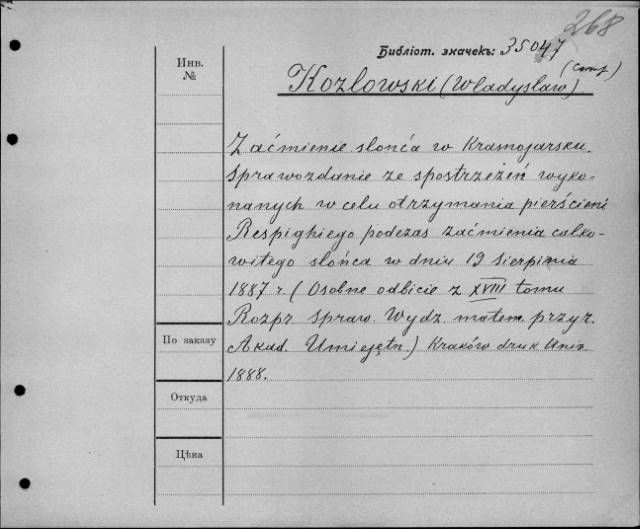 268
Инв.
№
Библіот. значекъ: 35047
(Comp)
Kozlowski (Wladyslaw)
Zaćmienie slońća w Krasnojarsku.
Sprawozdanie ze spostrzeżeń wyko-
nanych w celu otrzymania pierścieni
Respighiego podczas zaćmienia calko-
witego slońca w dniu 19 Sierpnia
1887 r. (Osobne odbicie z XVIII tomu
Rozpr spraw. Wydz. matem. przyr.
Akad. Umiejętn.) Kraków druk Univ.
1888.
По заказу
Откуда
Цѣна